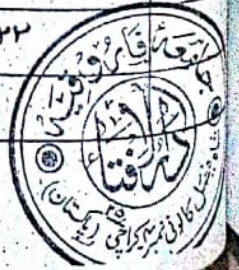 ۲۲
جامعہ فاروقیہ
دارالافتاء
۲۵
شاہ فیصل کالونی نمبر ۴ کراچی (پاکستان)